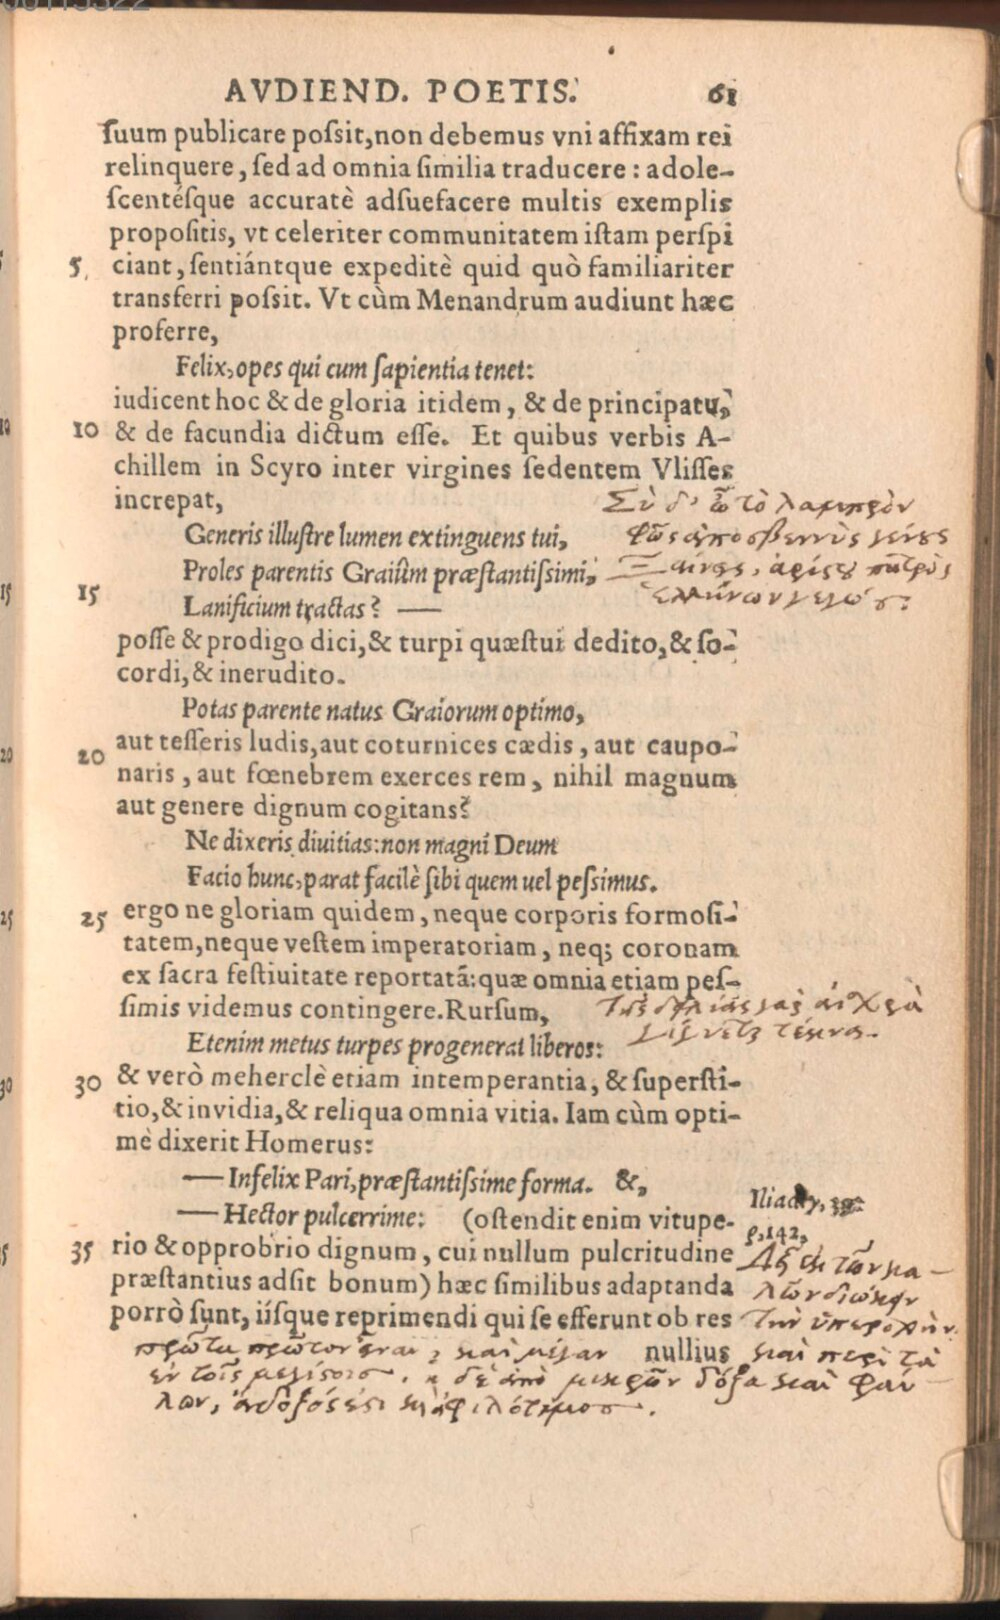 AVDIEND. POETIS. 61
suum publicare possit, non debemus vni affixam rei
relinquere, sed ad omnia similia traducere: adole-
scentésque accuratè adsuefacere multis exemplis
propositis, vt celeriter communitatem istam perspi
5 ciant, sentiántque expeditè quid quò familiariter
transferri possit. Vt cùm Menandrum audiunt hæc
proferre,
Felix, opes qui cum sapientia tenet:
iudicent hoc & de gloria itidem, & de principatu,
10 & de facundia dictum esse. Et quibus verbis A-
chillem in Scyro inter virgines sedentem Vlisses
increpat,
Σὺ δ' ὦ τὸ λαμπρὸν
Generis illustre lumen extinguens tui,
φῶς ἀποσβεννὺς γένους
Proles parentis Graiûm præstantissimi,
Ξαίνεις, ἀρίστου πατρὸς
15 Lanificium tractas? —
ἑλλήνων γεγώς;
posse & prodigo dici, & turpi quæstui dedito, & so-
cordi, & inerudito.
Potas parente natus Graiorum optimo,
aut tesseris ludis, aut coturnices cædis, aut caupo-
20 naris, aut fœnebrem exerces rem, nihil magnum
aut genere dignum cogitans?
Ne dixeris diuitias: non magni Deum
Facio hunc, parat facilè sibi quem uel pessimus.
25 ergo ne gloriam quidem, neque corporis formosi-
tatem, neque vestem imperatoriam, neq; coronam
ex sacra festiuitate reportatã: quæ omnia etiam pes-
simis videmus contingere. Rursum,
Τῆς δειλίας γὰρ αἰσχρὰ
γίγνεται τέκνα.
Etenim metus turpes progenerat liberos:
30 & verò meherclè etiam intemperantia, & supersti-
tio, & invidia, & reliqua omnia vitia. Iam cùm opti-
mè dixerit Homerus:
— Infelix Pari, præstantissime forma. &,
Iliad γ, 39.
— Hector pulcerrime: (ostendit enim vitupe-
ρ, 142,
35 rio & opprobrio dignum, cui nullum pulcritudine
præstantius adsit bonum) hæc similibus adaptanda
porrò sunt, iisque reprimendi qui se efferunt ob res
nullius
Δεῖ ἐκ τῶν κα-
λῶν διώκειν
τὴν ὑπεροχὴν
καὶ περὶ τὰ
πρῶτα πρῶτον εἶναι, καὶ μέγαν
ἐν τοῖς μεγίστοις. ἡ δὲ ἀπὸ μικρῶν δόξα καὶ φαύ-
λων, ἄδοξός ἐστι καὶ ἀφιλότιμος.